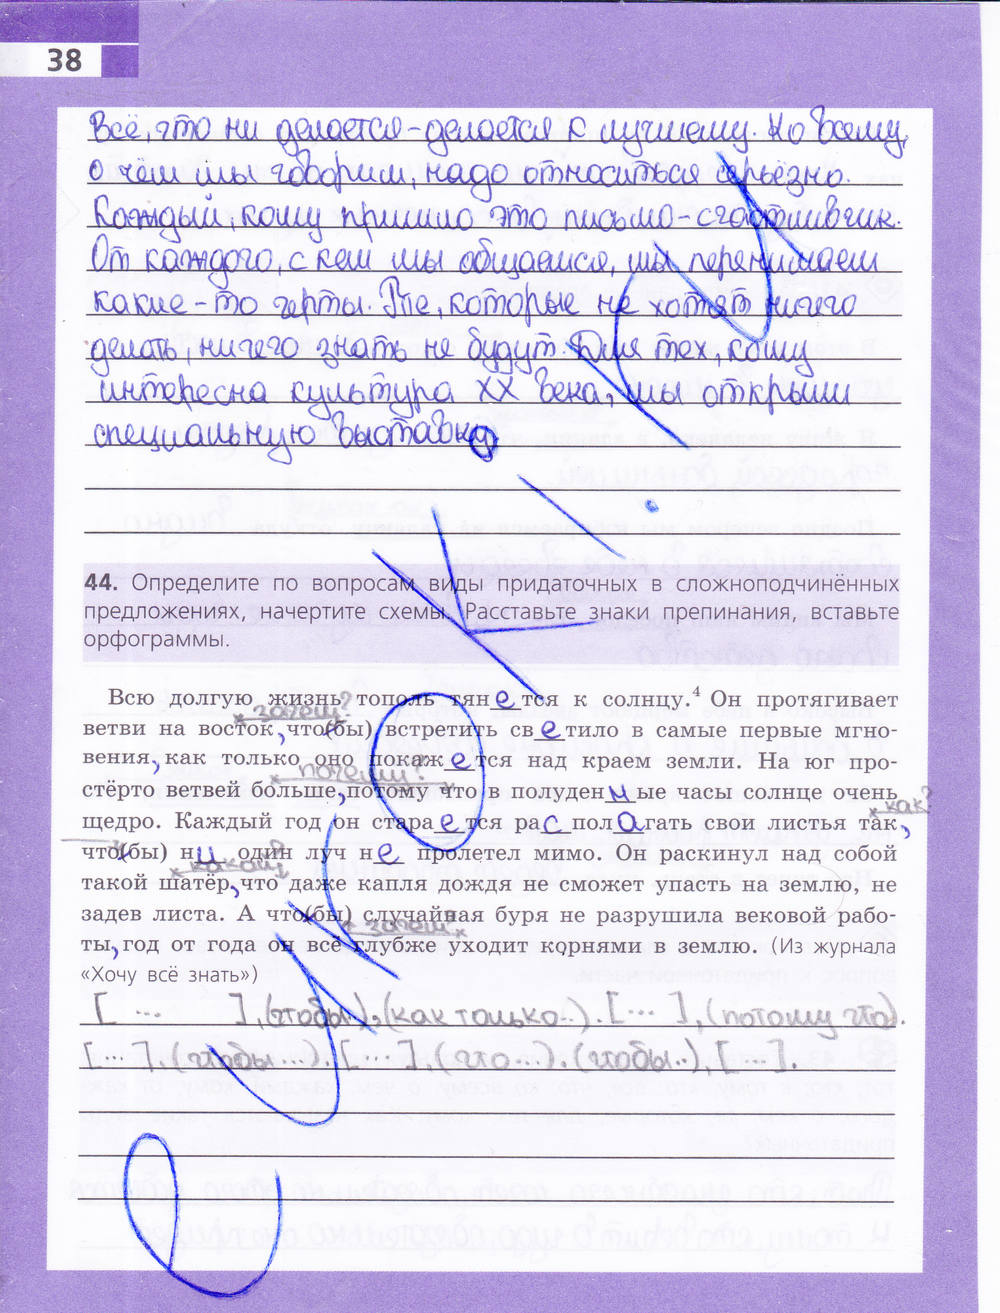 38
Всё, что ни делается - делается к лучшему. Ко всему,
о чём мы говорим, надо относиться серьёзно.
Каждый, кому пришло это письмо - счастливчик.
От каждого, с кем мы общаемся, мы перенимаем
какие-то черты. Те, которые не хотят ничего
делать, ничего знать не будут. Для тех, кому
интересна культура XX века, мы открыли
специальную выставку.
44. Определите по вопросам виды придаточных в сложноподчинённых
предложениях, начертите схемы. Расставьте знаки препинания, вставьте
орфограммы.
Всю долгую жизнь тополь тянется к солнцу.⁴ Он протягивает
зачем?
ветви на восток, что(бы) встретить светило в самые первые мгно-
вения, как только оно покажется над краем земли. На юг про-
почему?
стёрто ветвей больше, потому что в полуденные часы солнце очень
как?
щедро. Каждый год он старается располагать свои листья так,
что(бы) ни один луч не пролетел мимо. Он раскинул над собой
какой?
такой шатёр, что даже капля дождя не сможет упасть на землю, не
задев листа. А что(бы) случайная буря не разрушила вековой рабо-
зачем?
ты, год от года он всё глубже уходит корнями в землю. (Из журнала
«Хочу всё знать»)
[ ... ], (чтобы..), (как только..). [...], (потому что).
[...], (чтобы...). [...], (что...). (чтобы..), [...].
OUROKI.RU